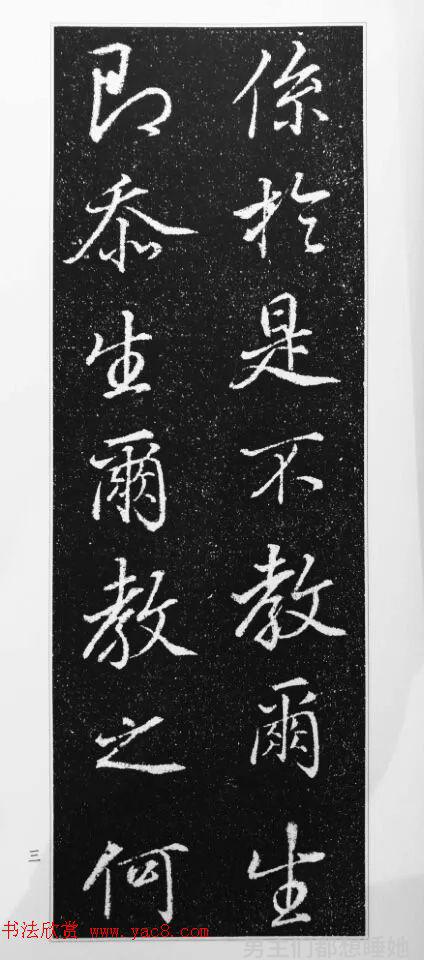 係於是不教爾生
即忝生爾教之何
三
书法欣赏 www.yac8.com
男主们都想睡她